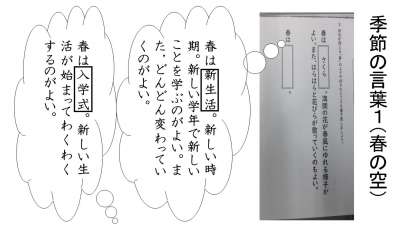 季節の言葉１(春の空)
春は
さくら
。満開の花が春風にゆれる様子が
よい。また、はらはらと花びらが散っていくのもよい。
春は
。
春は新生活。新しい時
期。新しい学年で新しい
ことを学ぶのがよい。ま
た、どんどん変わってい
くのがよい。
春は入学式。新しい生
活が始まってわくわく
するのがよい。